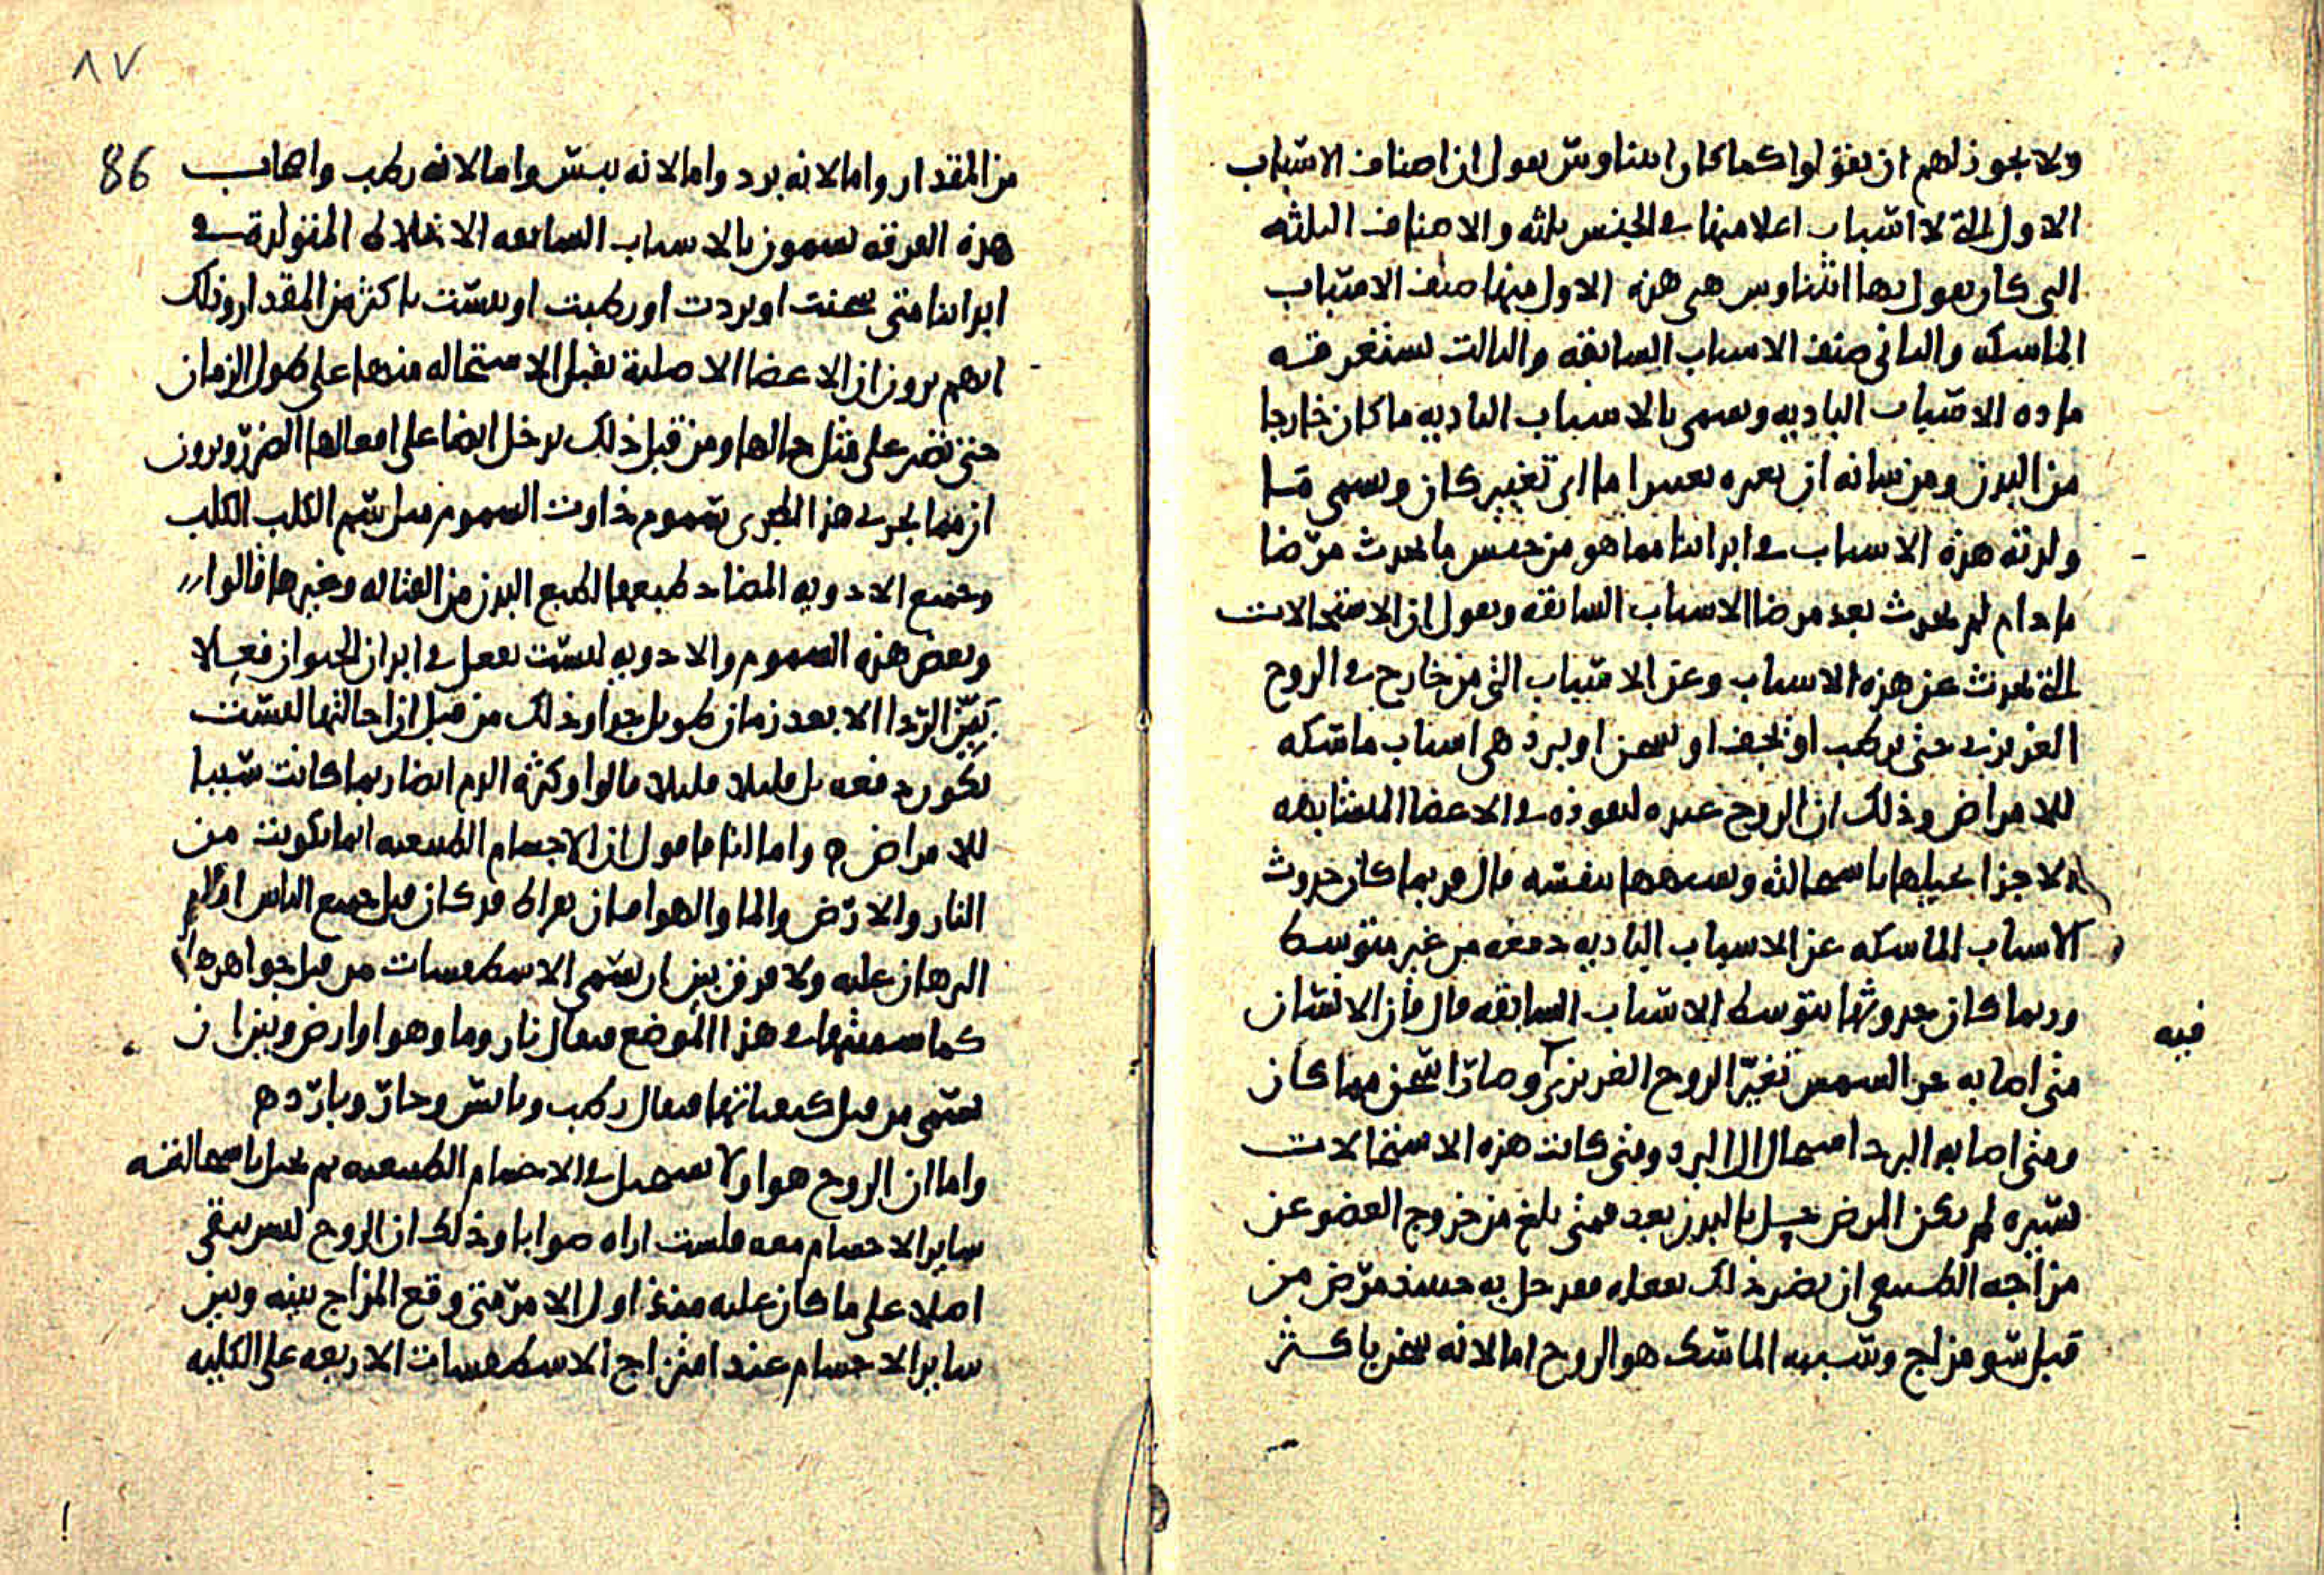 ولا يجوز لهم ان يقولوا كما كان اثيناوس يقول ان اصناف الاسباب
الاول التى لا اسباب اعلا منها فى الجنس ثلثه والاصناف الثلثه
التى كان يقول بها اثيناوس هى هذه الاول منها صنف الاسباب
الماسكه والثانى صنف الاسباب السابقه والثالث تستغرقه
ماده الاسباب الباديه ويسمى بالاسباب الباديه ما كان خارجا
من البدن ومن شانه ان يغيره تغييرا ما اى تغيير كان ويسمى ما
ولدته هذه الاسباب فى ابداننا مما هو من جنس ما يحدث مرضا
ما دام لم يحدث بعد مرضا الاسباب السابقه ويقول ان الاستحالات
التى تحدث عن هذه الاسباب وعن الاسباب التى من خارج فى الروح
الغريزى حتى يرطب او يجف او يسخن او يبرد هى اسباب ماسكه
للامراض وذلك ان الروح عنده لنفوذه فى الاعضا المتشابهه
الاجزا يحيلها باستحالته ويشبهها بنفسه قال وربما كان حدوث
الاسباب الماسكه عن الاسباب الباديه دفعه من غير متوسط
وربما كان حدوثها بتوسط الاسباب السابقه قال فان الانسان
فيه
متى اصابه حر الشمس تغير الروح الغريزى وصار اسخن مما كان
ومتى اصابه البرد استحال الى البرد ومتى كانت هذه الاستحالات
يسيره لم يكن المرض حل بالبدن بعد فمتى بلغ من خروج العضو عن
مزاجه الطبيعى ان يضر ذلك بفعله فقد حل به حينئذ مرض من
قبل سو مزاج وسببه الماسك هو الروح اما لانه سخن باكثر
٨٧
86
من المقدار واما لانه برد واما لانه يبس واما لانه رطب واصحاب
هذه الفرقه يسمون بالاسباب السابقه الاخلاط المتولدة فى
ابداننا متى سخنت او بردت او رطبت او يبست باكثر من المقدار وذلك
انهم يرون ان الاعضا الاصلية تقبل الاستحاله منها على طول الزمان
حتى تصير على مثل حالها ومن قبل ذلك يدخل ايضا على افعالها الضرر ويرون
ان مما يجرى هذا المجرى سموم ذوات السموم مثل سم الكلب الكلب
وجميع الادويه المضاد طبيعها لطبع البدن من القتاله وغيرها قالوا
وبعض هذه السموم والادويه ليست تفعل فى ابدان الحيوان فعلا
بين الردا الا بعد زمان طويل جدا وذلك من قبل ان احالتها ليست
تكون دفعه بل قليلا قليلا قالوا وكثره الدم ايضا ربما كانت سببا
للامراض ه واما انا فاقول ان الاجسام الطبيعيه انما تكونت من
النار والارض والما والهوا فان بقراط قد كان قبل جميع الناس
البرهان عليه ولا فرق بين ان تسمى الاسطقسات من قبل جواهرها
كما سميتها فى هذا الموضع فيقال نار وما وهوا وارض وبين ان
تسمى من قبل كيفياتها فيقال رطب ويابس وحار وبارد ه
واما ان الروح هو اولا يستحيل فى الاجسام الطبيعيه ثم يحيل باستحالته
ساير الاجسام معه فلست اراه صوابا وذلك ان الروح ليس يبقى
اصلا على ما كان عليه منذ اول الامر متى وقع المزاج بينه وبين
ساير الاجسام عند امتزاج الاسطقسات الاربعه على الكليه